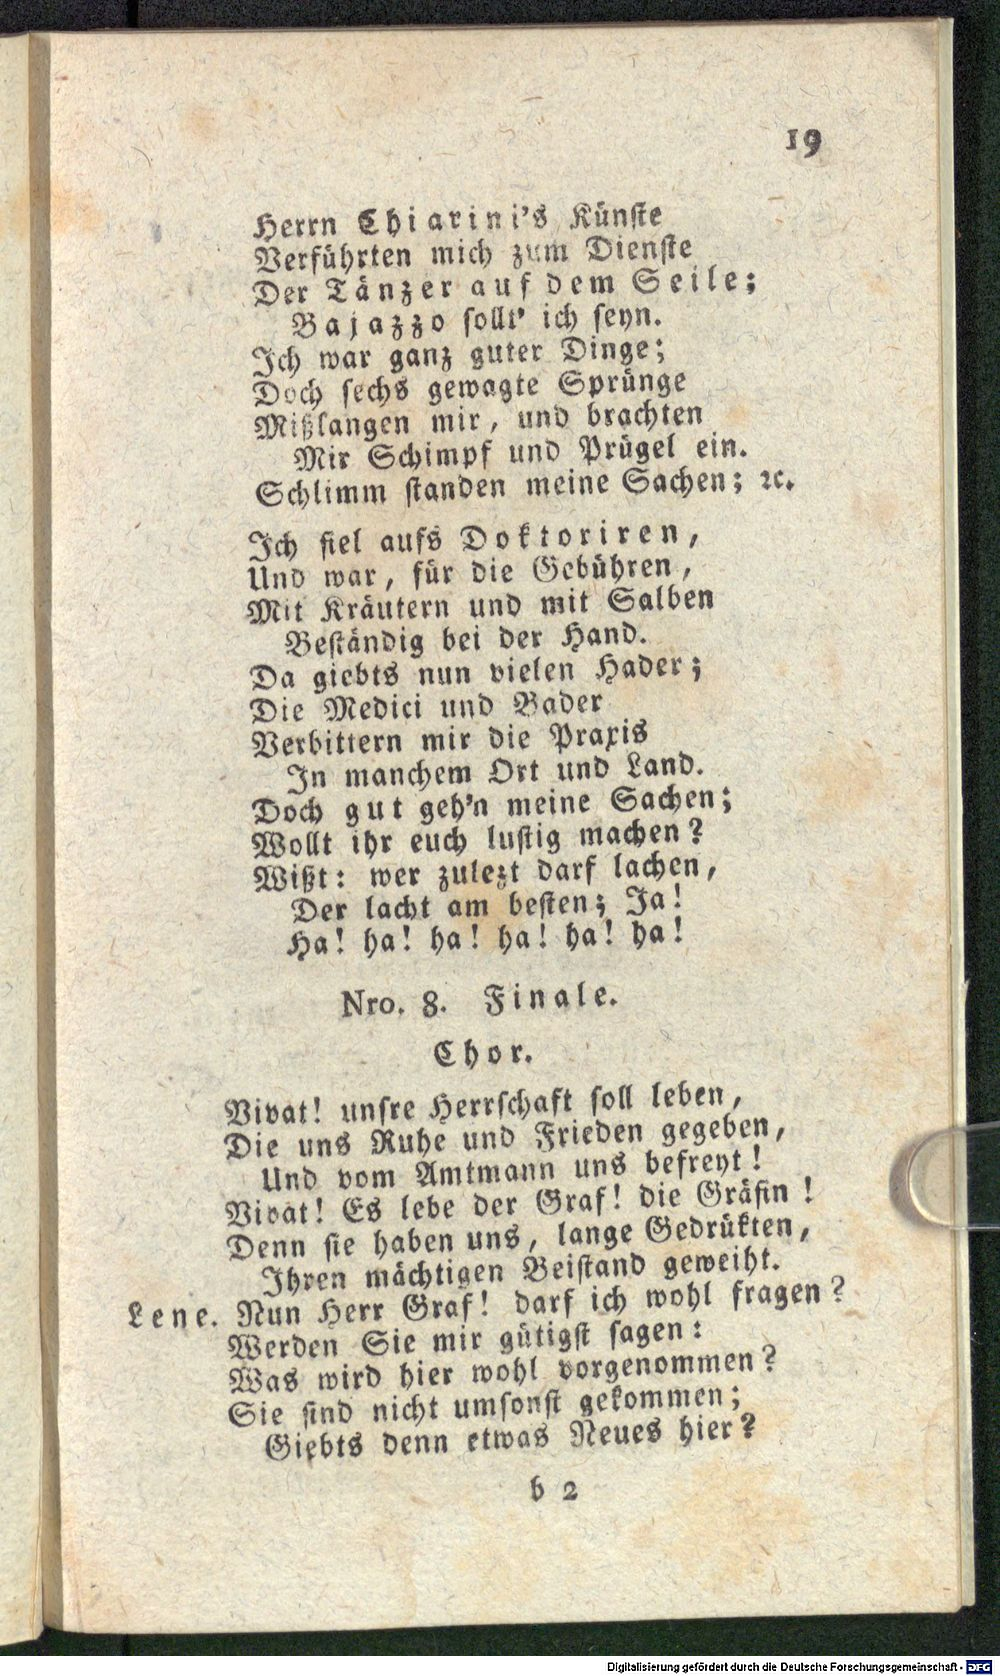 19
Herrn Chiarini's Künſte
Verführten mich zum Dienſte
Der Tänzer auf dem Seile;
Bajazzo ſollt' ich ſeyn.
Ich war ganz guter Dinge;
Doch ſechs gewagte Sprünge
Mißlangen mir, und brachten
Mir Schimpf und Prügel ein.
Schlimm ſtanden meine Sachen; ꝛc.
Ich fiel aufs Doktoriren,
Und war, für die Gebühren,
Mit Kräutern und mit Salben
Beſtändig bei der Hand.
Da giebts nun vielen Hader;
Die Medici und Bader
Verbittern mir die Praxis
In manchem Ort und Land.
Doch gut geh'n meine Sachen;
Wollt ihr euch luſtig machen?
Wißt: wer zulezt darf lachen,
Der lacht am beſten; Ja!
Ha! ha! ha! ha! ha! ha!
Nro. 8. Finale.
Chor.
Vivat! unſre Herrſchaft ſoll leben,
Die uns Ruhe und Frieden gegeben,
Und vom Amtmann uns befreyt!
Vivat! Es lebe der Graf! die Gräfin!
Denn ſie haben uns, lange Gedrükten,
Ihren mächtigen Beiſtand geweiht.
Lene. Nun Herr Graf! darf ich wohl fragen?
Werden Sie mir gütigſt ſagen:
Was wird hier wohl vorgenommen?
Sie ſind nicht umſonſt gekommen;
Giebts denn etwas Neues hier?
b 2
Digitalisierung gefördert durch die Deutsche Forschungsgemeinschaft - DFG